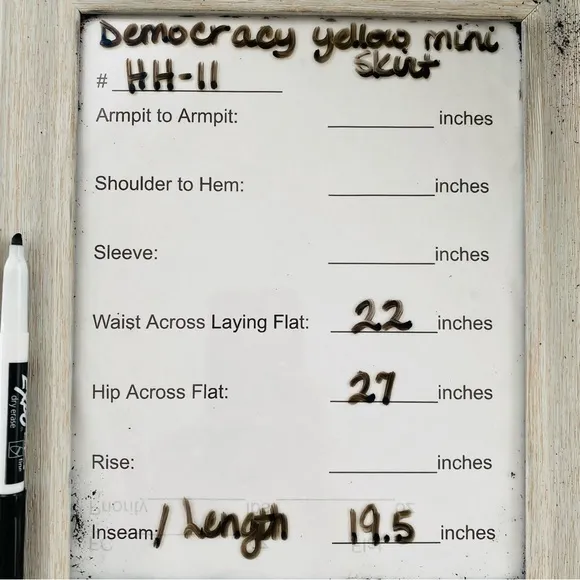 Democracy yellow mini
skirt
# HH-11
Armpit to Armpit: inches
Shoulder to Hem: inches
Sleeve: inches
Waist Across Laying Flat: 22 inches
Hip Across Flat: 27 inches
Rise: inches
Inseam: / Length 19.5 inches
EXPO
dry erase
fine